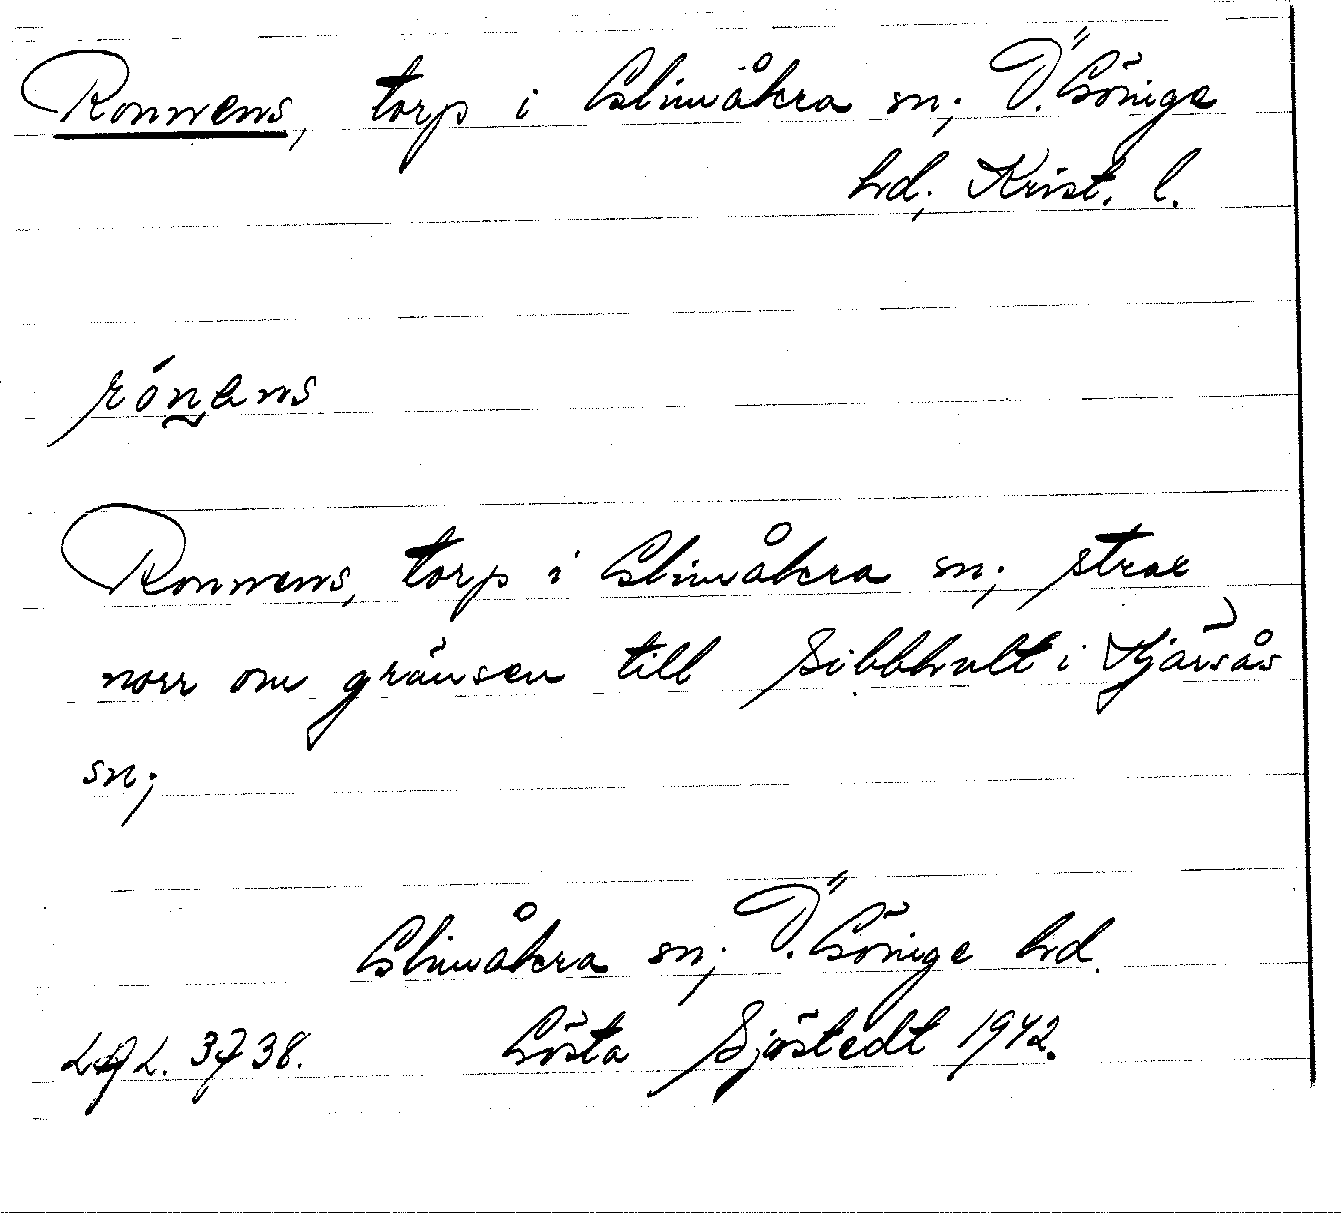 Ronnens, torp i Glimåkra sn; Ö. Göinge
hd; Krist. l.
rónens
Ronnens, torp i Glimåkra sn; strax
norr om gränsen till Sibbhult i Hjärsås
sn;
Glimåkra sn; Ö. Göinge hd.
3738. Gösta Sjöstedt 1942.